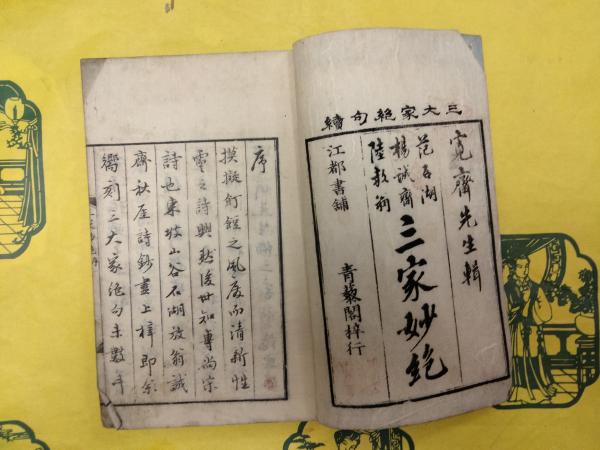 三大家絶句續
寛齋先生輯
范石湖
楊誠齋
陸放翁
三家妙絶
江都書舗
青藜閣梓行
序
摸擬飣餖之風廢而清新性
靈之詩興然後世知專尚宗
詩也東坡山谷石湖放翁誠
齋秋厓詩鈔盡上梓即余
嚮刻三大家絶句未數年